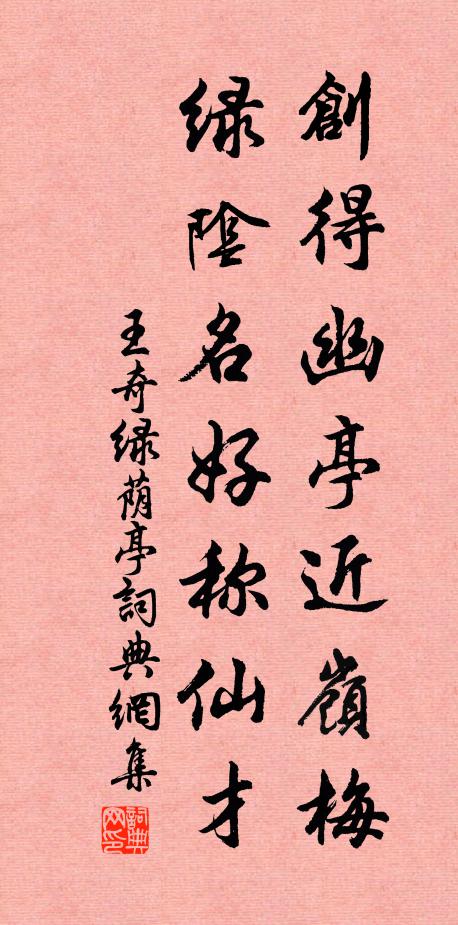 創得幽亭近嶺梅
緑陰名好称仙才
王奇緑荫亭詞典網集
詞典
网印